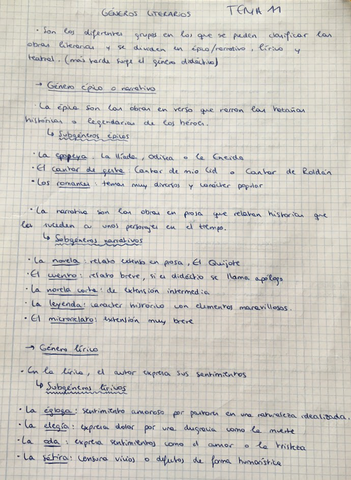 GÉNEROS LITERARIOS
TEMA 11
· Son los diferentes grupos en los que se pueden clasificar las
obras literarias y se dividen en épico/narrativo, lírico y
teatral. (más tarde surge el género didáctico)
→ Género épico o narrativo
La épica son las obras en verso que narran las hazañas
históricas o legendarias de los héroes.
↳ Subgéneros épicos
· La epopeya: La Ilíada, Odisea o la Eneida
· El cantar de gesta: Cantar de mio Cid o Cantar de Roldán
· Los romances: temas muy diversos y carácter popular
· La narrativa son las obras en prosa que relatan historias que
les suceden a unos personajes en el tiempo.
↳ Subgéneros narrativos
· La novela: relato extenso en prosa, El Quijote
· El cuento: relato breve, si es didáctico se llama apólogo
· La novela corta: de extensión intermedia
· La leyenda: carácter histórico con elementos maravillosos.
· El microrrelato: extensión muy breve
→ Género lírico
· En la lírica, el autor expresa sus sentimientos
↳ Subgéneros líricos
· La égloga: sentimiento amoroso por pastores en una naturaleza idealizada.
· La elegía: expresa dolor por una desgracia como la muerte
· La oda: expresa sentimientos como el amor o la tristeza
· La sátira: censura vicios o defectos de forma humorística